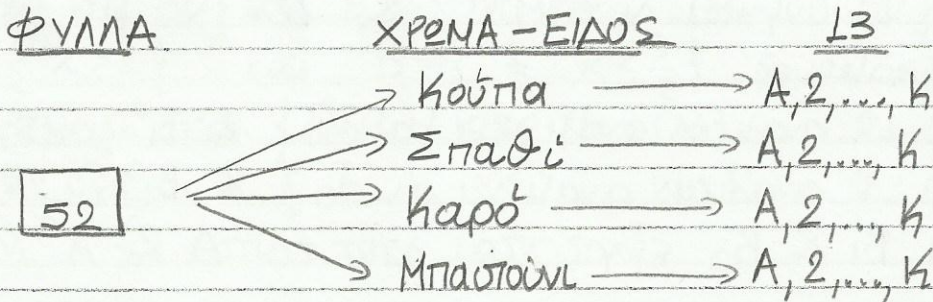 ΦΥΛΛΑ ΧΡΩΜΑ - ΕΙΔΟΣ 13
Κούπα A, 2, ..., K
Σπαθί A, 2, ..., K
52
Καρό A, 2, ..., K
Μπαστούνι A, 2, ..., K